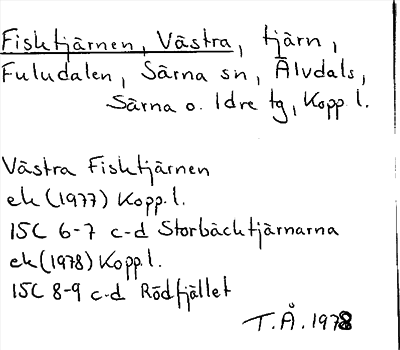 Fisktjärnen, Västra, tjärn,
Fuludalen, Särna sn, Älvdals,
Särna o. Idre tg, Kopp. l.
Västra Fisktjärnen
ek (1977) Kopp. l.
15C 6-7 c-d Storbäcktjärnarna
ek (1978) Kopp l.
15C 8-9 c-d Rödfjället
T.Å. 1978